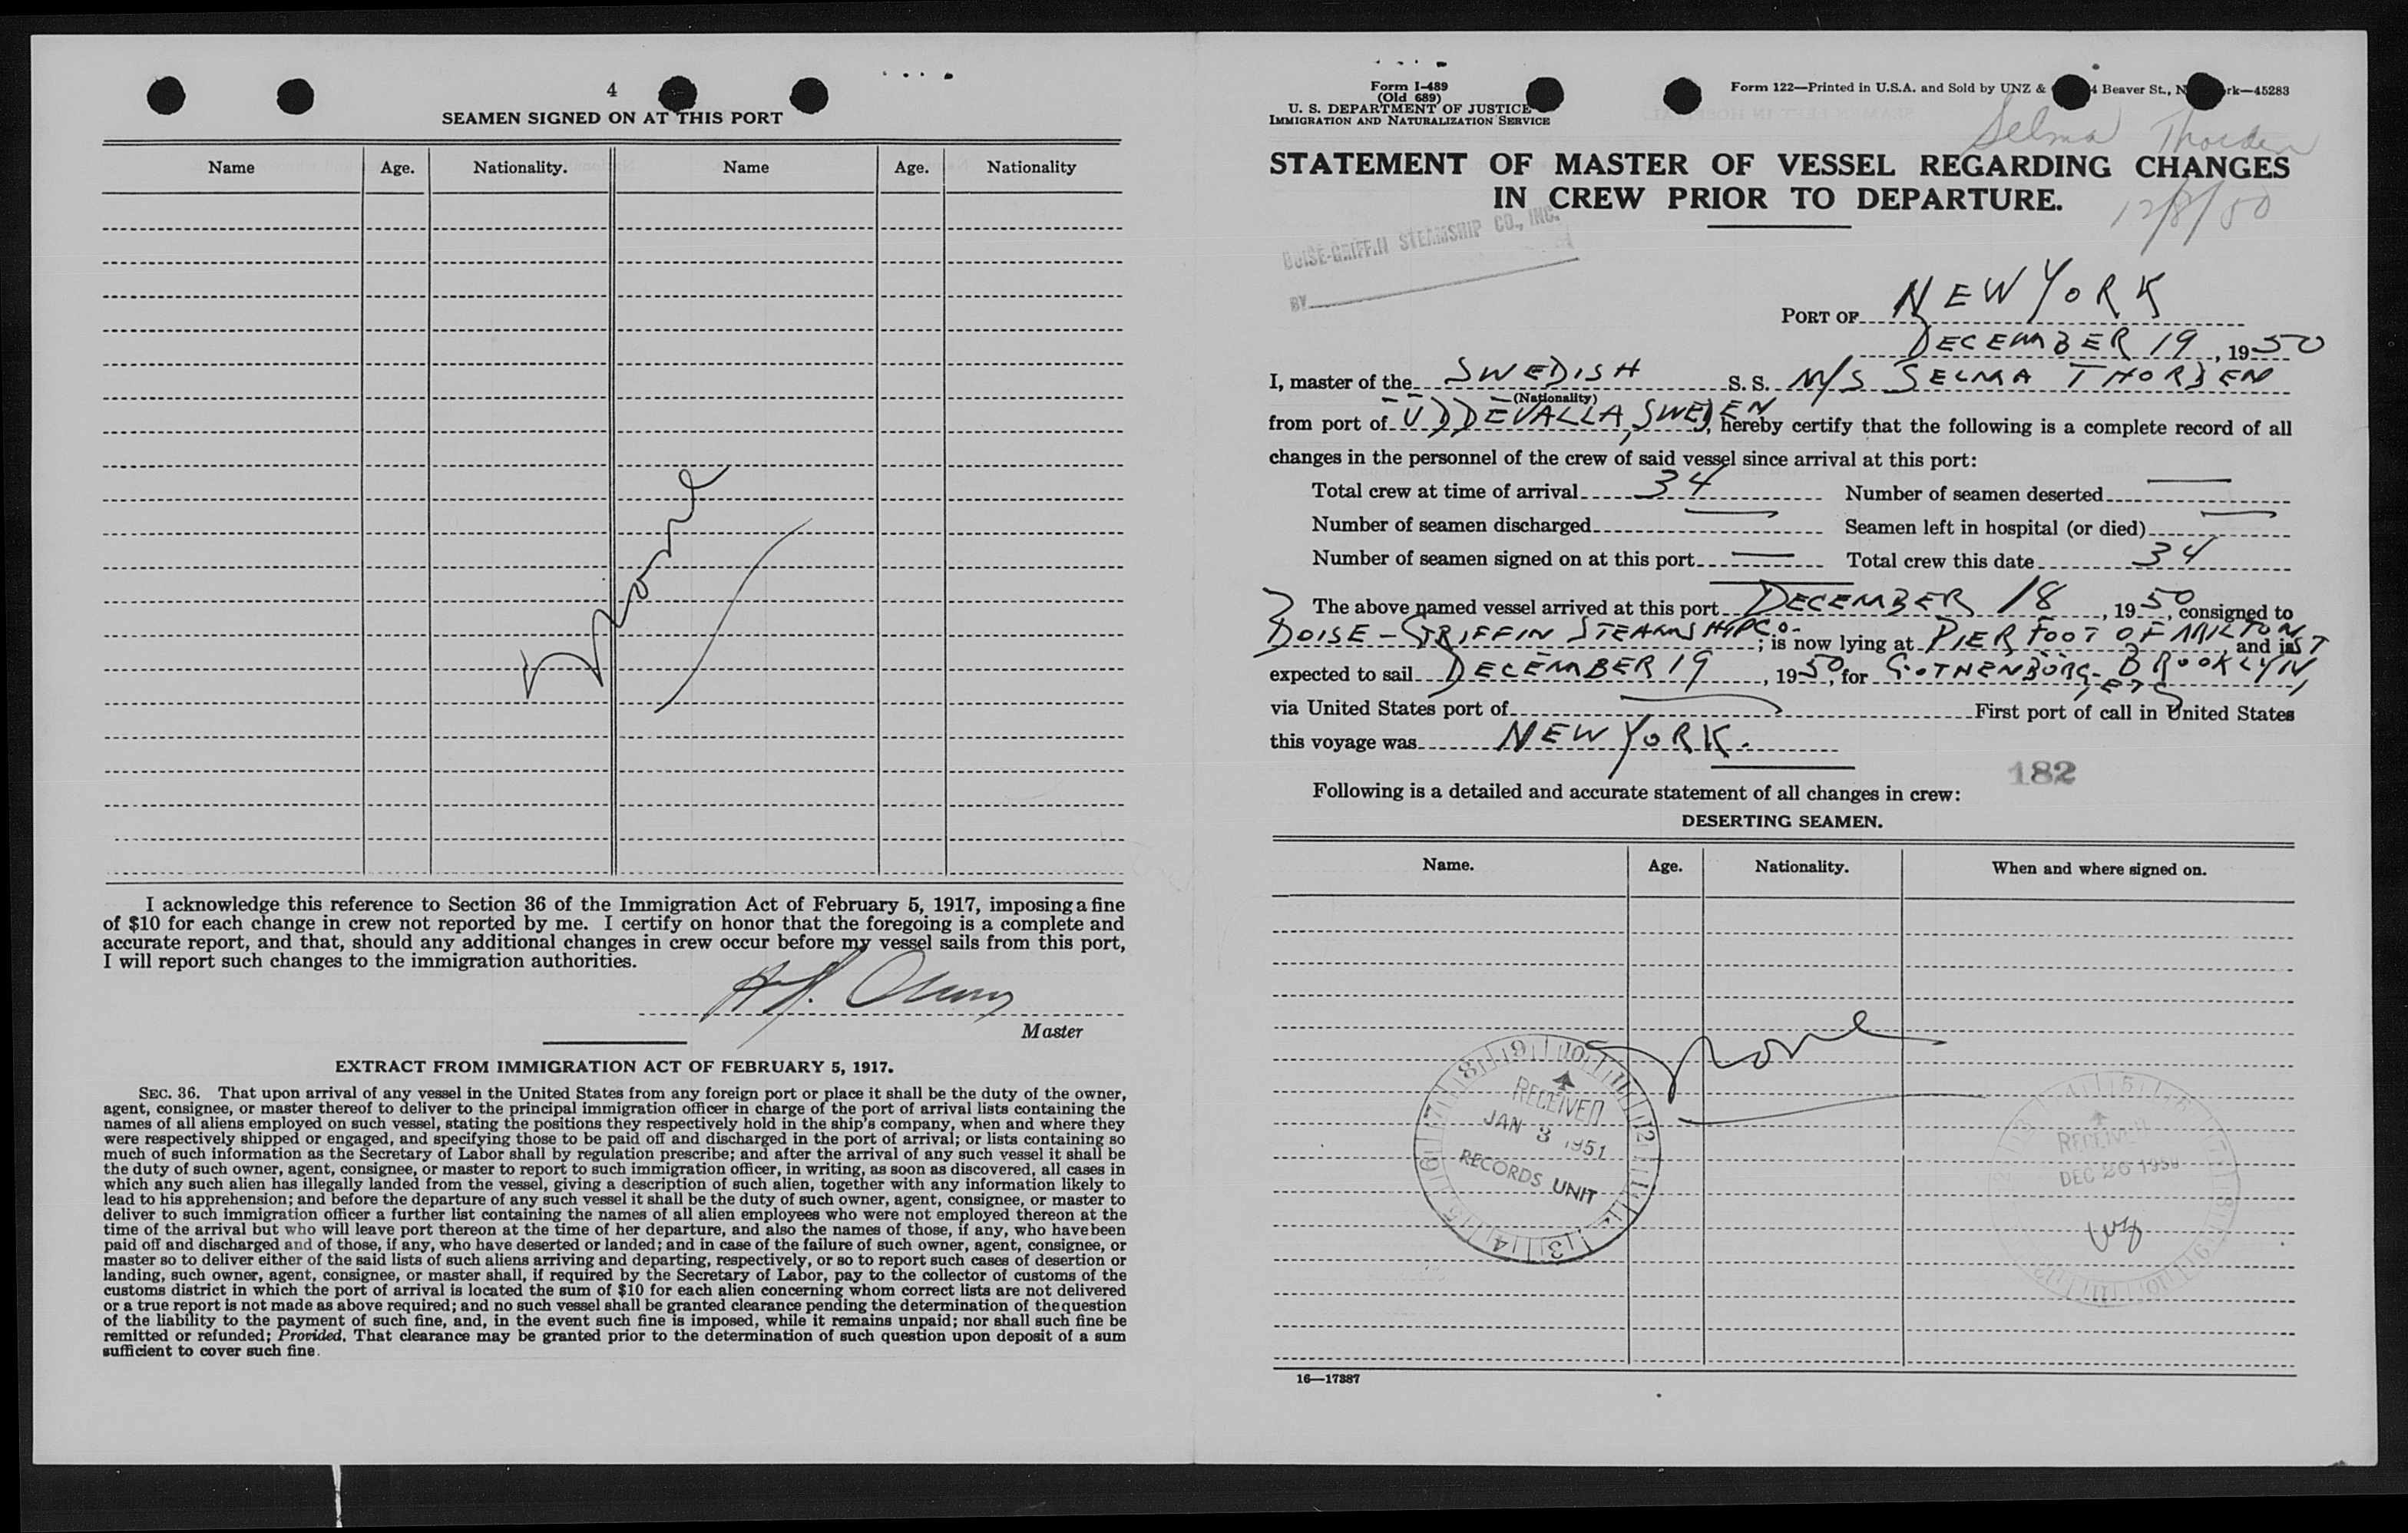 4
SEAMEN SIGNED ON AT THIS PORT
Name Age. Nationality. Name Age. Nationality
None
I acknowledge this reference to Section 36 of the Immigration Act of February 5, 1917, imposing a fine
of $10 for each change in crew not reported by me. I certify on honor that the foregoing is a complete and
accurate report, and that, should any additional changes in crew occur before my vessel sails from this port,
I will report such changes to the immigration authorities.
Master
EXTRACT FROM IMMIGRATION ACT OF FEBRUARY 5, 1917.
SEC. 36. That upon arrival of any vessel in the United States from any foreign port or place it shall be the duty of the owner,
agent, consignee, or master thereof to deliver to the principal immigration officer in charge of the port of arrival lists containing the
names of all aliens employed on such vessel, stating the positions they respectively hold in the ship's company, when and where they
were respectively shipped or engaged, and specifying those to be paid off and discharged in the port of arrival; or lists containing so
much of such information as the Secretary of Labor shall by regulation prescribe; and after the arrival of any such vessel it shall be
the duty of such owner, agent, consignee, or master to report to such immigration officer, in writing, as soon as discovered, all cases in
which any such alien has illegally landed from the vessel, giving a description of such alien, together with any information likely to
lead to his apprehension; and before the departure of any such vessel it shall be the duty of such owner, agent, consignee, or master to
deliver to such immigration officer a further list containing the names of all alien employees who were not employed thereon at the
time of the arrival but who will leave port thereon at the time of her departure, and also the names of those, if any, who have been
paid off and discharged and of those, if any, who have deserted or landed; and in case of the failure of such owner, agent, consignee, or
master so to deliver either of the said lists of such aliens arriving and departing, respectively, or so to report such cases of desertion or
landing, such owner, agent, consignee, or master shall, if required by the Secretary of Labor, pay to the collector of customs of the
customs district in which the port of arrival is located the sum of $10 for each alien concerning whom correct lists are not delivered
or a true report is not made as above required; and no such vessel shall be granted clearance pending the determination of the question
of the liability to the payment of such fine, and, in the event such fine is imposed, while it remains unpaid; nor shall such fine be
remitted or refunded; Provided, That clearance may be granted prior to the determination of such question upon deposit of a sum
sufficient to cover such fine.
Form I-489
(Old 689)
U. S. DEPARTMENT OF JUSTICE
IMMIGRATION AND NATURALIZATION SERVICE
Form 122—Printed in U.S.A. and Sold by UNZ & 4 Beaver St., N rk—45283
Selma Thorden
STATEMENT OF MASTER OF VESSEL REGARDING CHANGES
IN CREW PRIOR TO DEPARTURE.
12/8/50
BOISE-GRIFFIN STEAMSHIP CO., INC.
BY
PORT OF NEW YORK
DECEMBER 19, 1950
I, master of the SWEDISH S. S. M/S SELMA THORDEN
(Nationality)
from port of UDDEVALLA, SWEDEN, hereby certify that the following is a complete record of all
changes in the personnel of the crew of said vessel since arrival at this port:
Total crew at time of arrival 34 Number of seamen deserted —
Number of seamen discharged — Seamen left in hospital (or died) —
Number of seamen signed on at this port — Total crew this date 34
The above named vessel arrived at this port DECEMBER 18, 1950, consigned to
BOISE-GRIFFIN STEAMSHIP CO.; is now lying at PIER FOOT OF MILTON ST and is
BROOKLYN
expected to sail DECEMBER 19, 1950, for GOTHENBURG, ETC
via United States port of — First port of call in United States
this voyage was NEW YORK.
182
Following is a detailed and accurate statement of all changes in crew:
DESERTING SEAMEN.
Name. Age. Nationality. When and where signed on.
None
RECEIVED
JAN 3 1951
RECORDS UNIT
RECEIVED
DEC 20 1950
16—17387